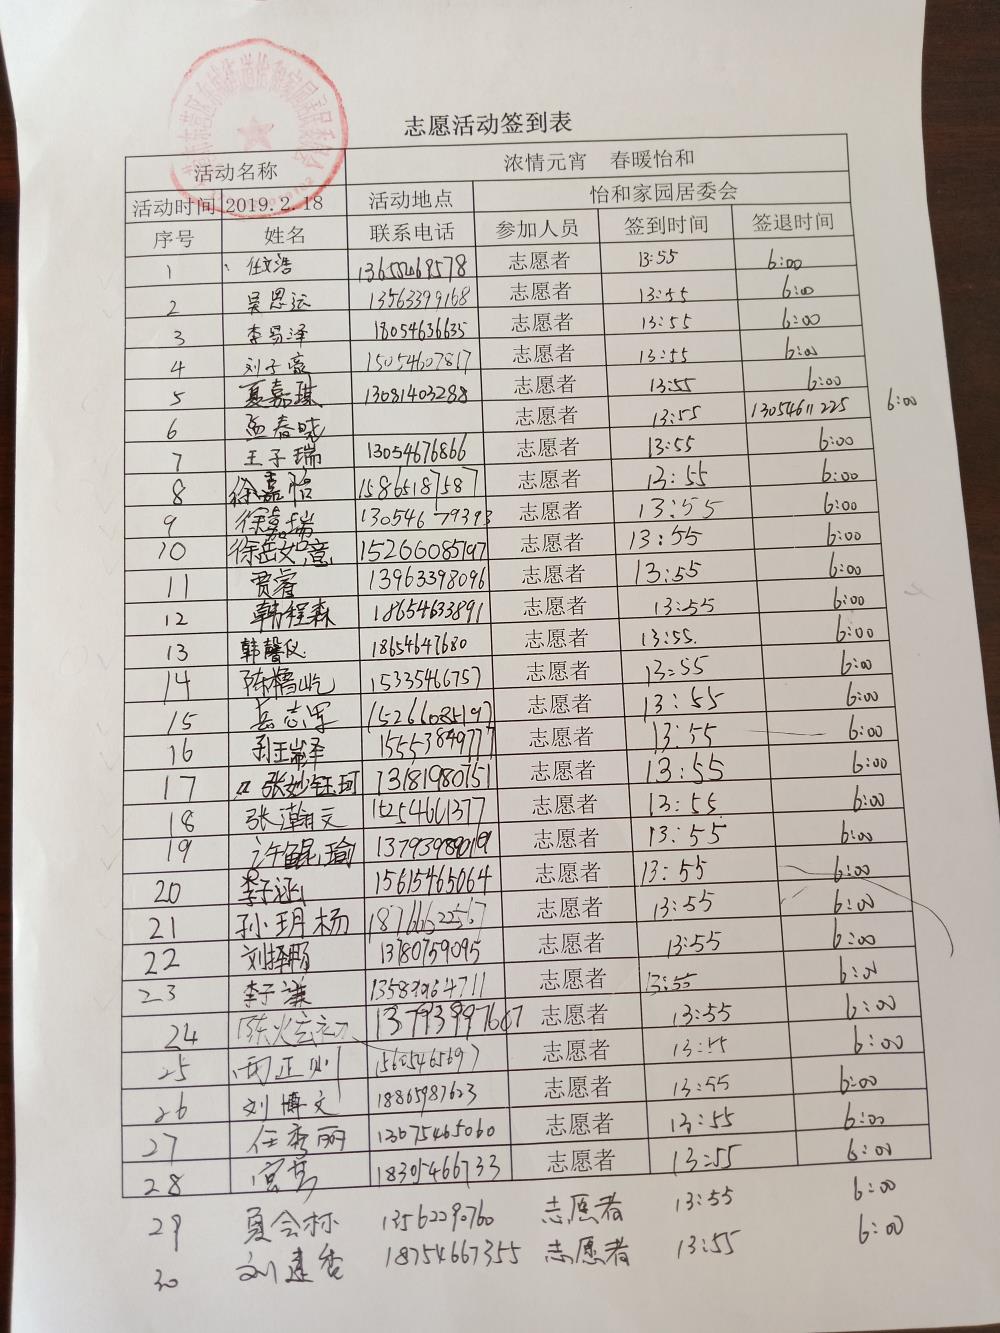 志愿活动签到表
活动名称 浓情元宵 春暖怡和
活动时间 2019.2.18 活动地点 怡和家园居委会
序号 姓名 联系电话 参加人员 签到时间 签退时间
1 任文浩 志愿者 13:55 6:00
2 吴思运 13563399168 志愿者 13:55 6:00
3 李易泽 18054636635 志愿者 13:55 6:00
4 刘子豪 15054607817 志愿者 13:55 6:00
5 夏嘉琪 13081403288 志愿者 13:55 6:00
6 孟春晓 志愿者 13:55 13054611225 6:00
7 王子瑞 13054676866 志愿者 13:55 6:00
8 徐嘉阳 15865187587 志愿者 13:55 6:00
9 徐嘉瑞 13054679393 志愿者 13:55 6:00
10 徐岳如意 15266085197 志愿者 13:55 6:00
11 贾睿 13963398096 志愿者 13:55 6:00
12 韩程森 18654633891 志愿者 13:55 6:00
13 韩馨仪 18654647680 志愿者 13:55. 6:00
14 陈 屹 15335466757 志愿者 13:55 6:00
15 岳志军 15266085197 志愿者 13:55 6:00
16 孙王瑞泽 15553849777 志愿者 13:55 6:00
17 张妙钰珂 13181980751 志愿者 13:55 6:00
18 张瀚文 15254661377 志愿者 13:55 6:00
19 许鲲瑜 志愿者 13:55 6:00
20 李子涵 15615465064 志愿者 13:55 6:00
21 孙玥杨 18766622567 志愿者 13:55 6:00
22 刘择鹏 13780759095 志愿者 13:55 6:00
23 李子谦 志愿者 13:55 6:00
24 13793997667 志愿者 13:55 6:00
25 周正则 15605465697 志愿者 13:55 6:00
26 刘博文 18865987623 志愿者 13:55 6:00
27 任秀丽 13075465060 志愿者 13:55 6:00
28 18305466733 志愿者 13:55 6:00
29 夏会林 13562290760 志愿者 13:55 6:00
30 刘建香 18754667355 志愿者 13:55 6:00